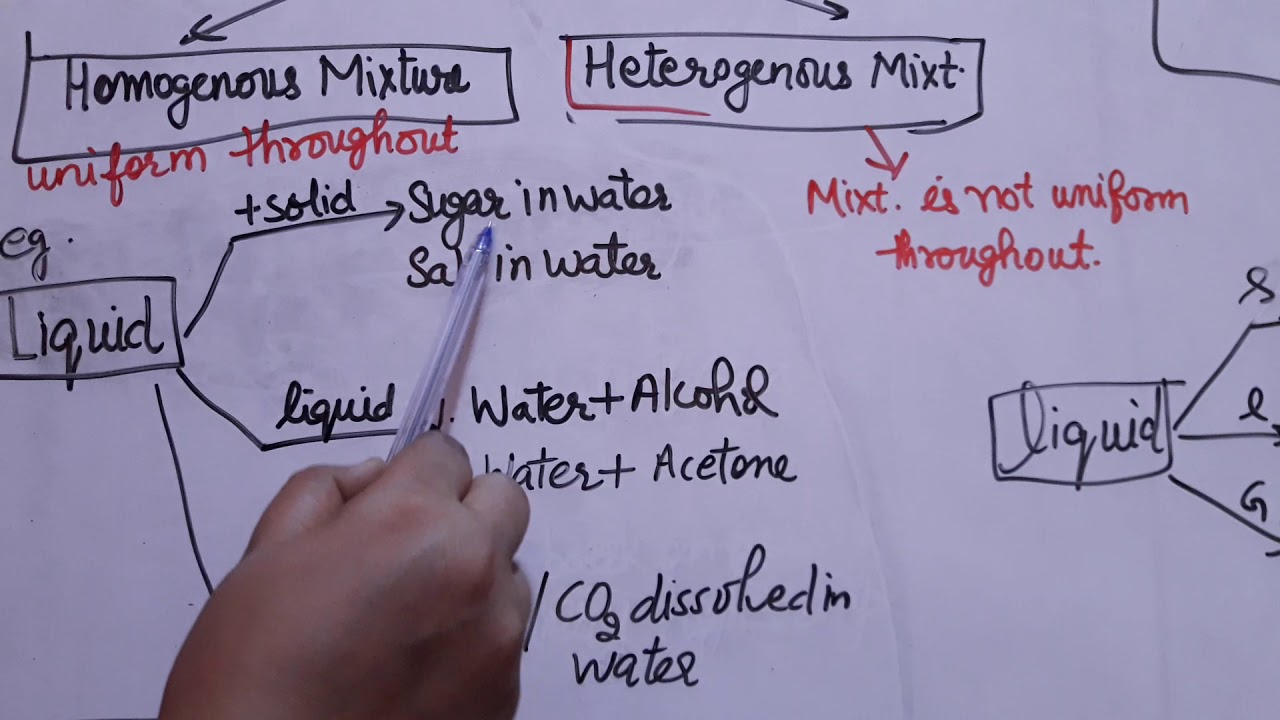 Homogenous Mixture
uniform throughout
eg.
Liquid
+solid
Sugar in water
in water
liquid
Water + Alcohol
Water + Acetone
/ CO2 dissolved in
water
Heterogenous Mixt.
Mixt. is not uniform
throughout.
liquid
S
l
G